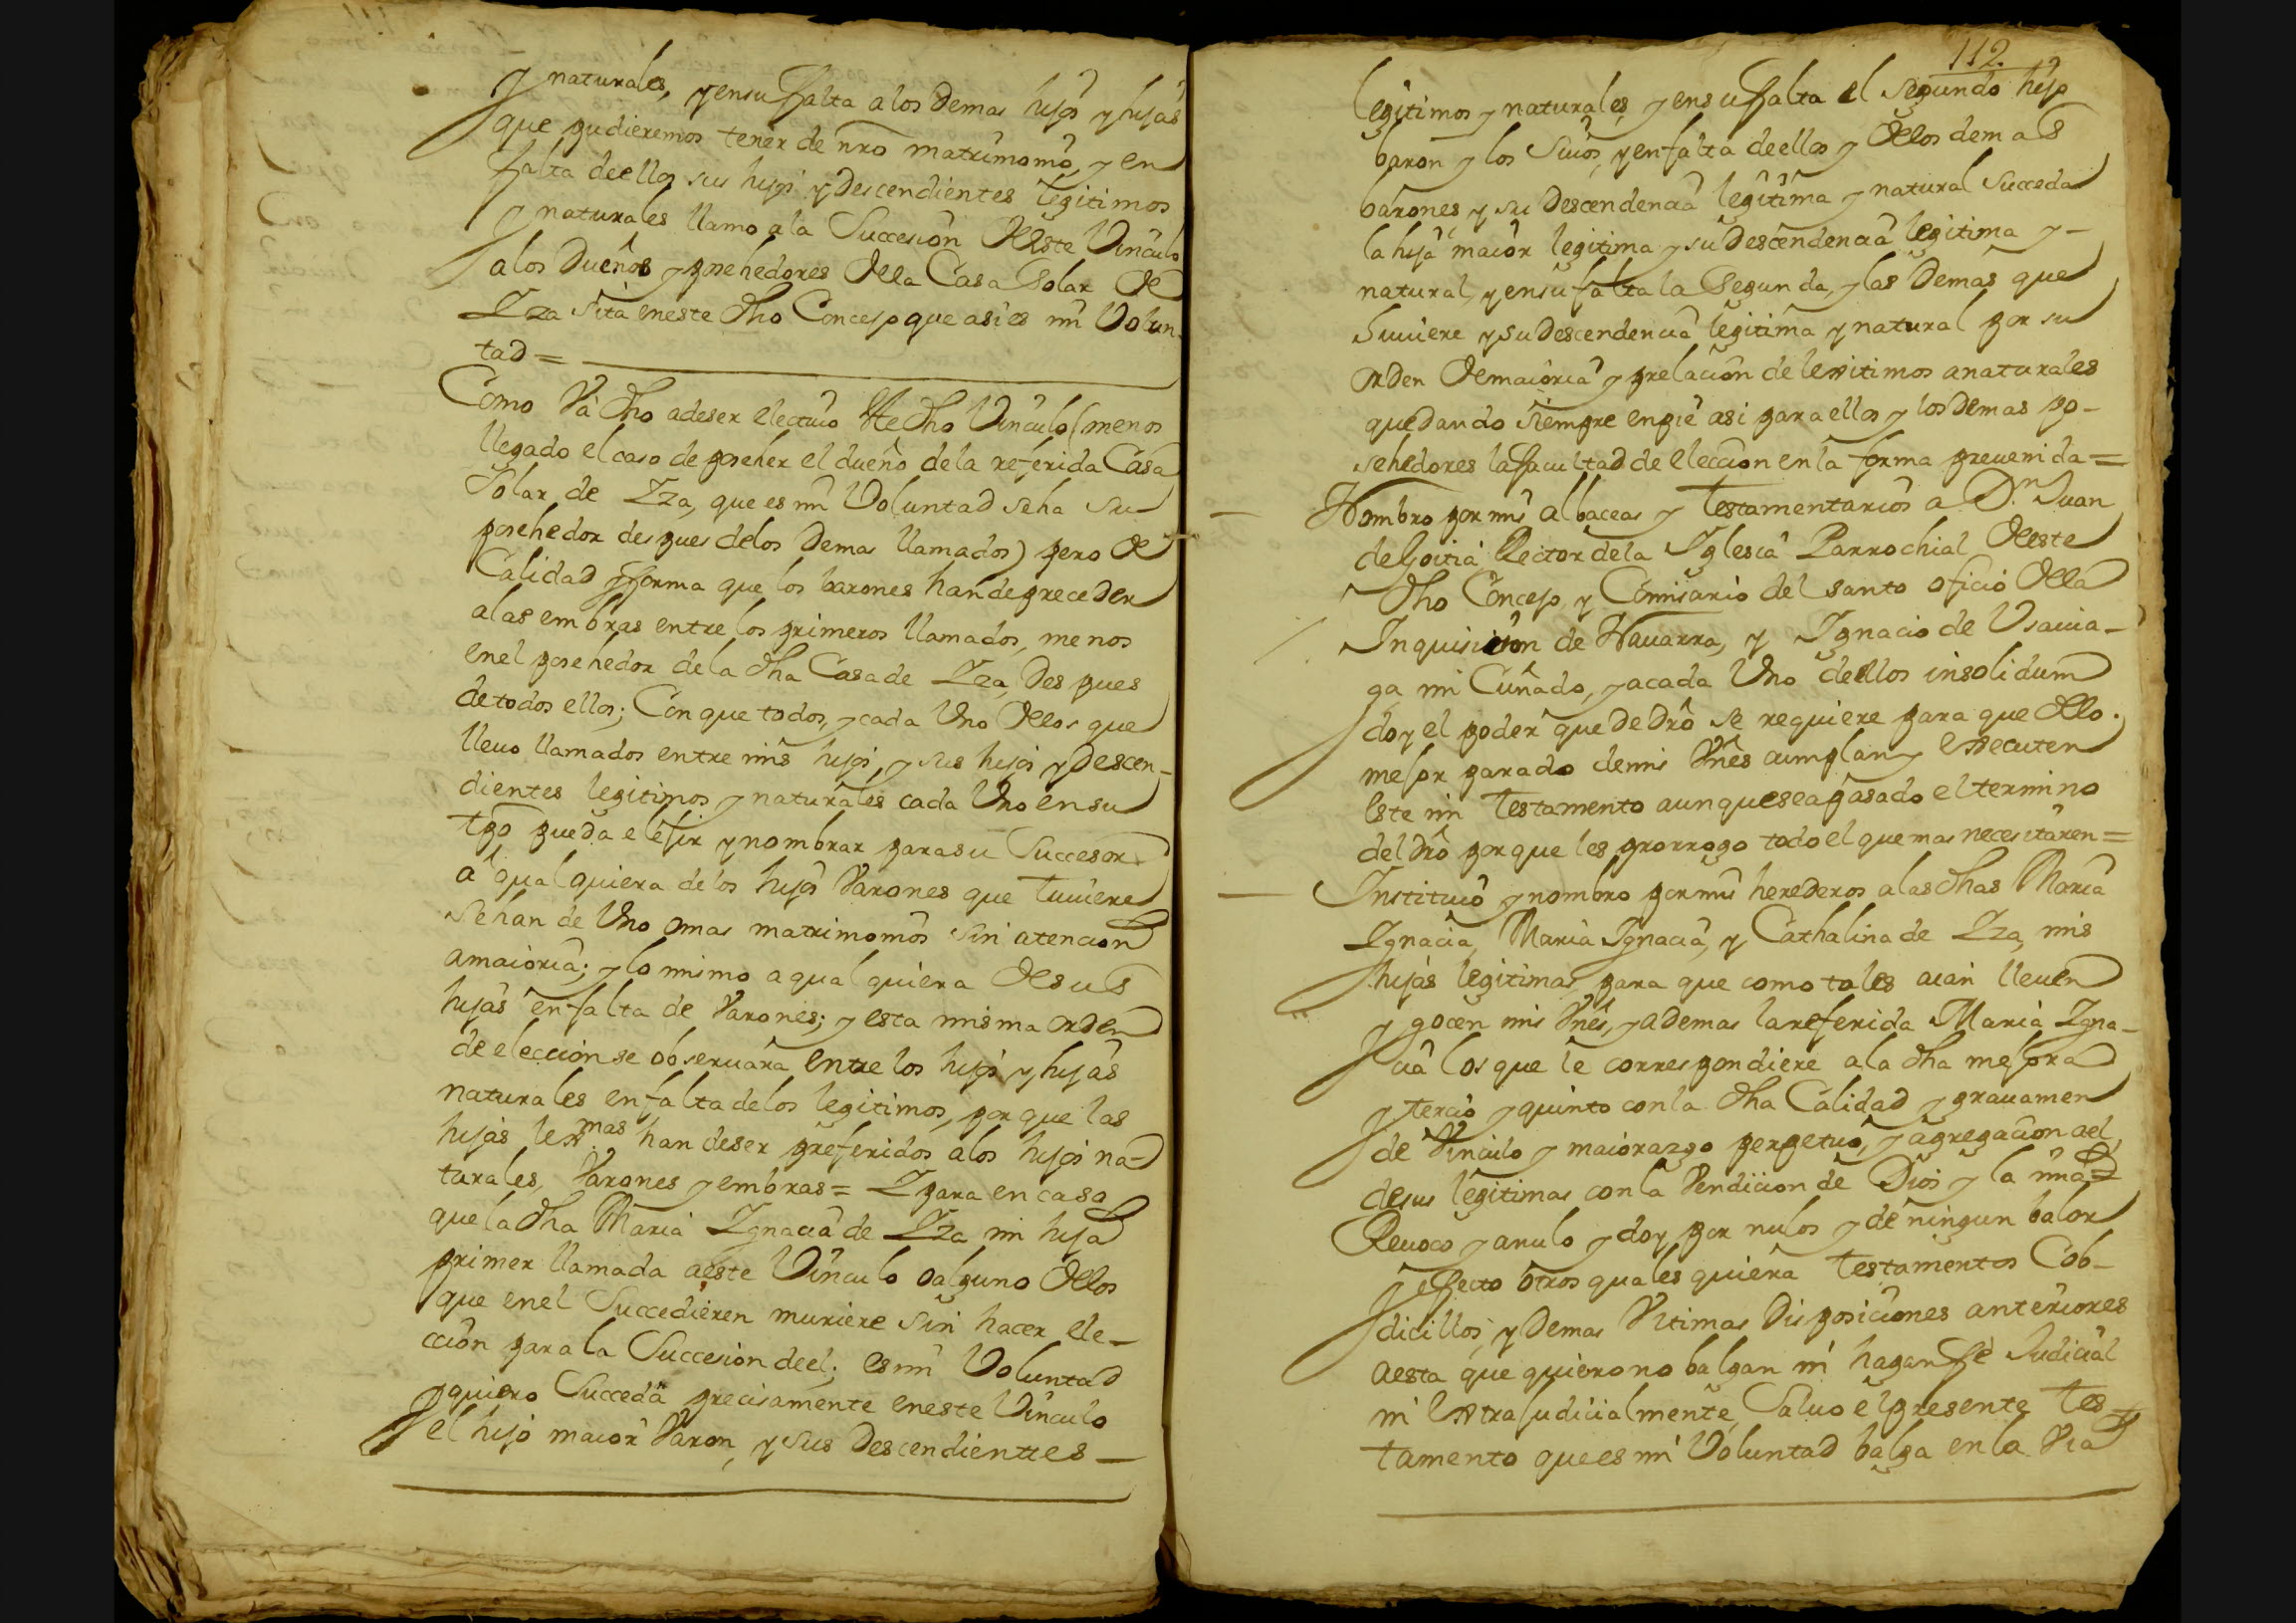 y naturales, y en su falta a los demas hijos y hijas
que pudieremos tener de nro matrimonio, y en
falta de ellos sus hijos y descendientes legitimos
y naturales llamo a la Succesion deste Vinculo
a los Dueños y posehedores de la Casa Solar de
Yza sita en este dho Concejo que asi es mi Volun-
tad =
Como Va dho a de ser electivo este dho Vinculo (menos
llegado el caso de poseher el dueño de la referida Casa
Solar de Yza, que es mi Voluntad seha su
posehedor despues de los demas llamados) pero de
Calidad y forma que los barones han de preceder
a las embras entre los primeros llamados, menos
en el posehedor de la dha Casa de Yza, des pues
de todos ellos; Con que todos, y cada Uno dellos que
lleuo llamados entre mis hijos, y sus hijos y descen-
dientes legitimos y naturales cada Uno en su
tpo pueda elejir y nombrar para su Succesor
a qual quiera de los hijos Varones que tuuiere
sehan de Uno o mas matrimonios sin atencion
a maioria; y lo mimo a qual quiera de sus
hijas en falta de Varones; y esta misma orden
de eleccion se obseruara entre los hijos y hijas
naturales en falta de los legitimos, por que las
hijas lexmas han de ser preferidos a los hijos na-
turales, Varones y embras = Y para en caso
que la dha Maria Ygnacia de Yza mi hija
primer llamada a este Vinculo o alguno dellos
que en el Succedieren muriere sin hacer ele-
ccion para la Succesion de el; es mi Voluntad
y quiero Succeda precisamente en este Vinculo
el hijo maior Varon, y sus Descendienttes —
112.
legitimos y naturales, y en su falta el segundo hijo
baron y los suios, y en falta de ellos y dellos demas
barones y su Descendencia legitima y natural Succeda
la hija maior legitima y su descendencia legitima y -
natural, y en su falta la Segunda, y las demas que
huuiere y su descendencia legitima y natural por su
orden de maioria y prelacion de lexitimos a naturales
quedando siempre en pie asi para ellos y los demas po-
sehedores la facultad de eleccion en la forma preuenida =
Nombro por mis albaceas y testamentarios a Dn Juan
de Goitia Rector de la Yglesia Parrochial deste
dho Concejo, y Comisario del santo oficio de la
Inquisicion de Nauarra, y Ygnacio de Usauia-
ga mi Cuñado, y a cada Uno dellos insolidum
doy el poder que de dro se requiere para que dello
mejor parado de mis Vnes cumplan y executen
este mi testamento aunque sea pasado el termino
del dro por que les prorrogo todo el que mas necesitaren =
Instituio y nombro por mis herederos a las dhas Maria
Ygnacia, Maria Ygnacia, y Cathalina de Yza, mis
hijas legitimas para que como tales aian lleuen
y gocen mis Vnes, y ademas la referida Maria Ygna-
cia los que le correspondiere a la dha mejora
y tercio y quinto con la dha Calidad y grauamen
de Vinculo y maiorazgo perpetuo, y agregacion a el
de sus legitimas con la Vendicion de Dios y la mia =
Reuoco y anulo y doy por nulos y de ningun balor
y efecto otros quales quiera testamentos Cob-
dicillos, y demas Vltimas Disposiciones anteriores
a esta que quiero no balgan ni hagan fe Judicial
ni extrajudicialmente, Saluo el presente tes-
tamento que es mi Voluntad balga en la Via